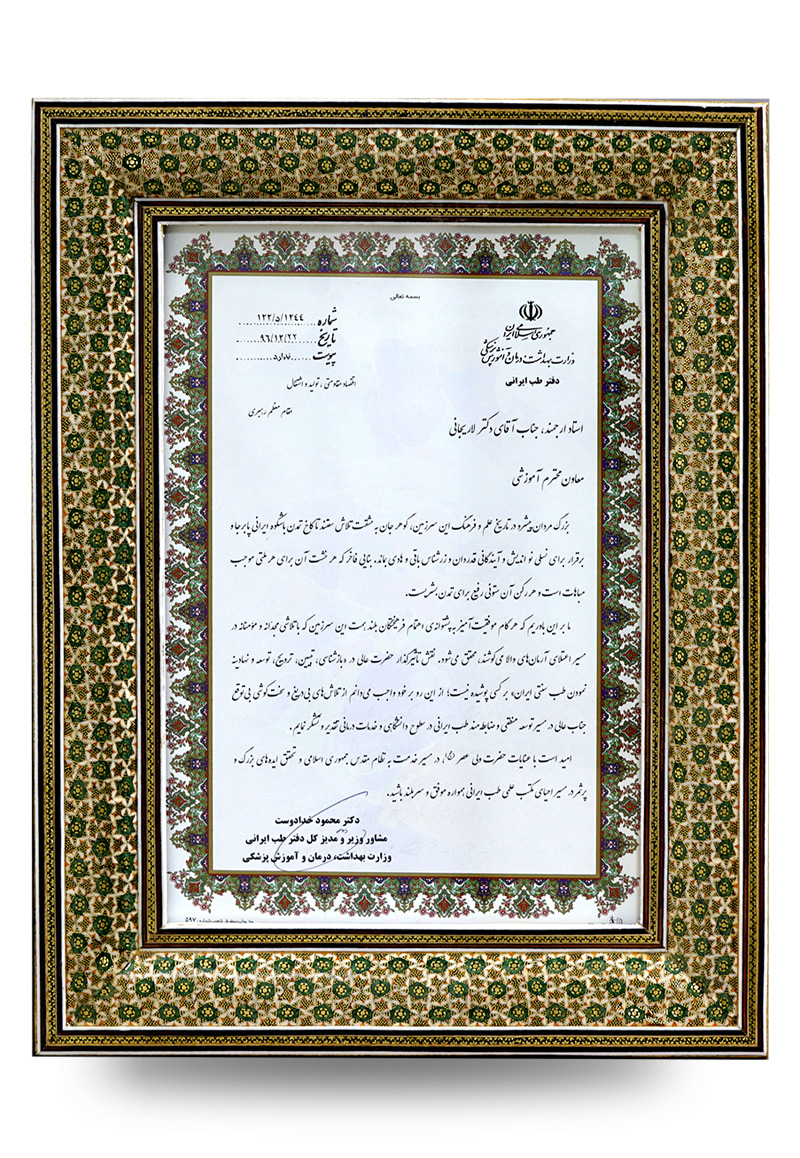 بسمه تعالی
جمهوری اسلامی ایران
وزارت بهداشت، درمان و آموزش پزشکی
دفتر طب ایرانی
شماره ۱۲۲/۵/۱۲۴۴
تاریخ ۹۶/۱۲/۲۲
پیوست ندارد
اقتصاد مقاومتی ، تولید و اشتغال
مقام معظم رهبری
استاد ارجمند، جناب آقای دکتر لاریجانی
معاون محترم آموزشی
بزرگ مردان پیشرو در تاریخ علم و فرهنگ این سرزمین، گوهر جان به مشقت تلاش سفتند تا کاخ تمدن باشکوه ایرانی پابرجا و
برقرار برای نسلی نو اندیش و آیندگانی قدردان و زرشناس باقی و هادی بماند. بنایی فاخر که هر خشت آن برای هر ملتی موجب
مباهات است و هر رکن آن ستونی رفیع برای تمدن بشریست.
ما بر این باوریم که هر کام موفقیت آمیز به پشتوانه ی اهتمام فرهیختگان بلند همت این سرزمین که با تلاشی مجدانه و مؤمنانه در
مسیر اعتلای آرمان‌های والا می‌کوشند، محقق می‌شود. نقش تأثیرگذار حضرت عالی در «بازشناسی، تبیین، ترویج، توسعه و نهادینه
نمودن طب سنتی ایران» بر کسی پوشیده نیست؛ از این رو بر خود واجب می‌دانم از تلاش‌های بی‌دریغ و سخت‌کوشی بی‌توقع
جناب عالی در مسیر توسعه منطقی و ضابطه‌مند طب ایرانی در سطوح دانشگاهی و خدمات درمانی تقدیر و تشکر نمایم.
امید است با عنایات حضرت ولی عصر (عج)، در مسیر خدمت به نظام مقدس جمهوری اسلامی و تحقق ایده‌های بزرگ و
پرثمر در مسیر احیای مکتب علمی طب ایرانی همواره موفق و سربلند باشید.
دکتر محمود خدادوست
مشاور وزیر و مدیر کل دفتر طب ایرانی
وزارت بهداشت، درمان و آموزش پزشکی